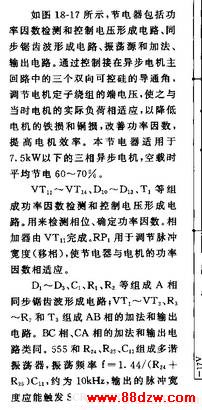 如图18-17所示,节电器包括功
率因数检测和控制电压形成电路、同
步锯齿波形成电路、振荡源和加法、
输出电路。通过控制接在异步电机主
回路中的三个双向可控硅的导通角,
调节电机定子绕组的端电压,使之与
当时电机的实际负荷相适应,以降低
电机的铁损和铜损,改善功率因数,
提高电机效率。本节电器适用于
7.5kW以下的三相异步电机,空载时
平均节电60~70%。
VT₁₁~VT₁₄、D₁₀~D₁₃、T₁等组
成功率因数检测和控制电压形成电
路。用来检测相位、确定功率因数。相
加器由VT₁₁完成。RP₁用于调节脉冲
宽度(移相),使节电器与电机的功率
因数相适应。
D₁~D₃、C₁、R₁、R₂等组成A相
同步锯齿波形成电路;VT₁~VT₃、R₃
~R₇和T₃组成AB相的加法和输出
电路。BC相、CA相的加法和输出电
路类同。555和R₂₄、R₂₅、C₁₂组成多谐
振荡器,振荡频率f=1.44/(R₂₄+
R₂₅)C₁₂,约为10kHz,输出的脉冲宽
度应能触发S
-17V
www.88dzw.com